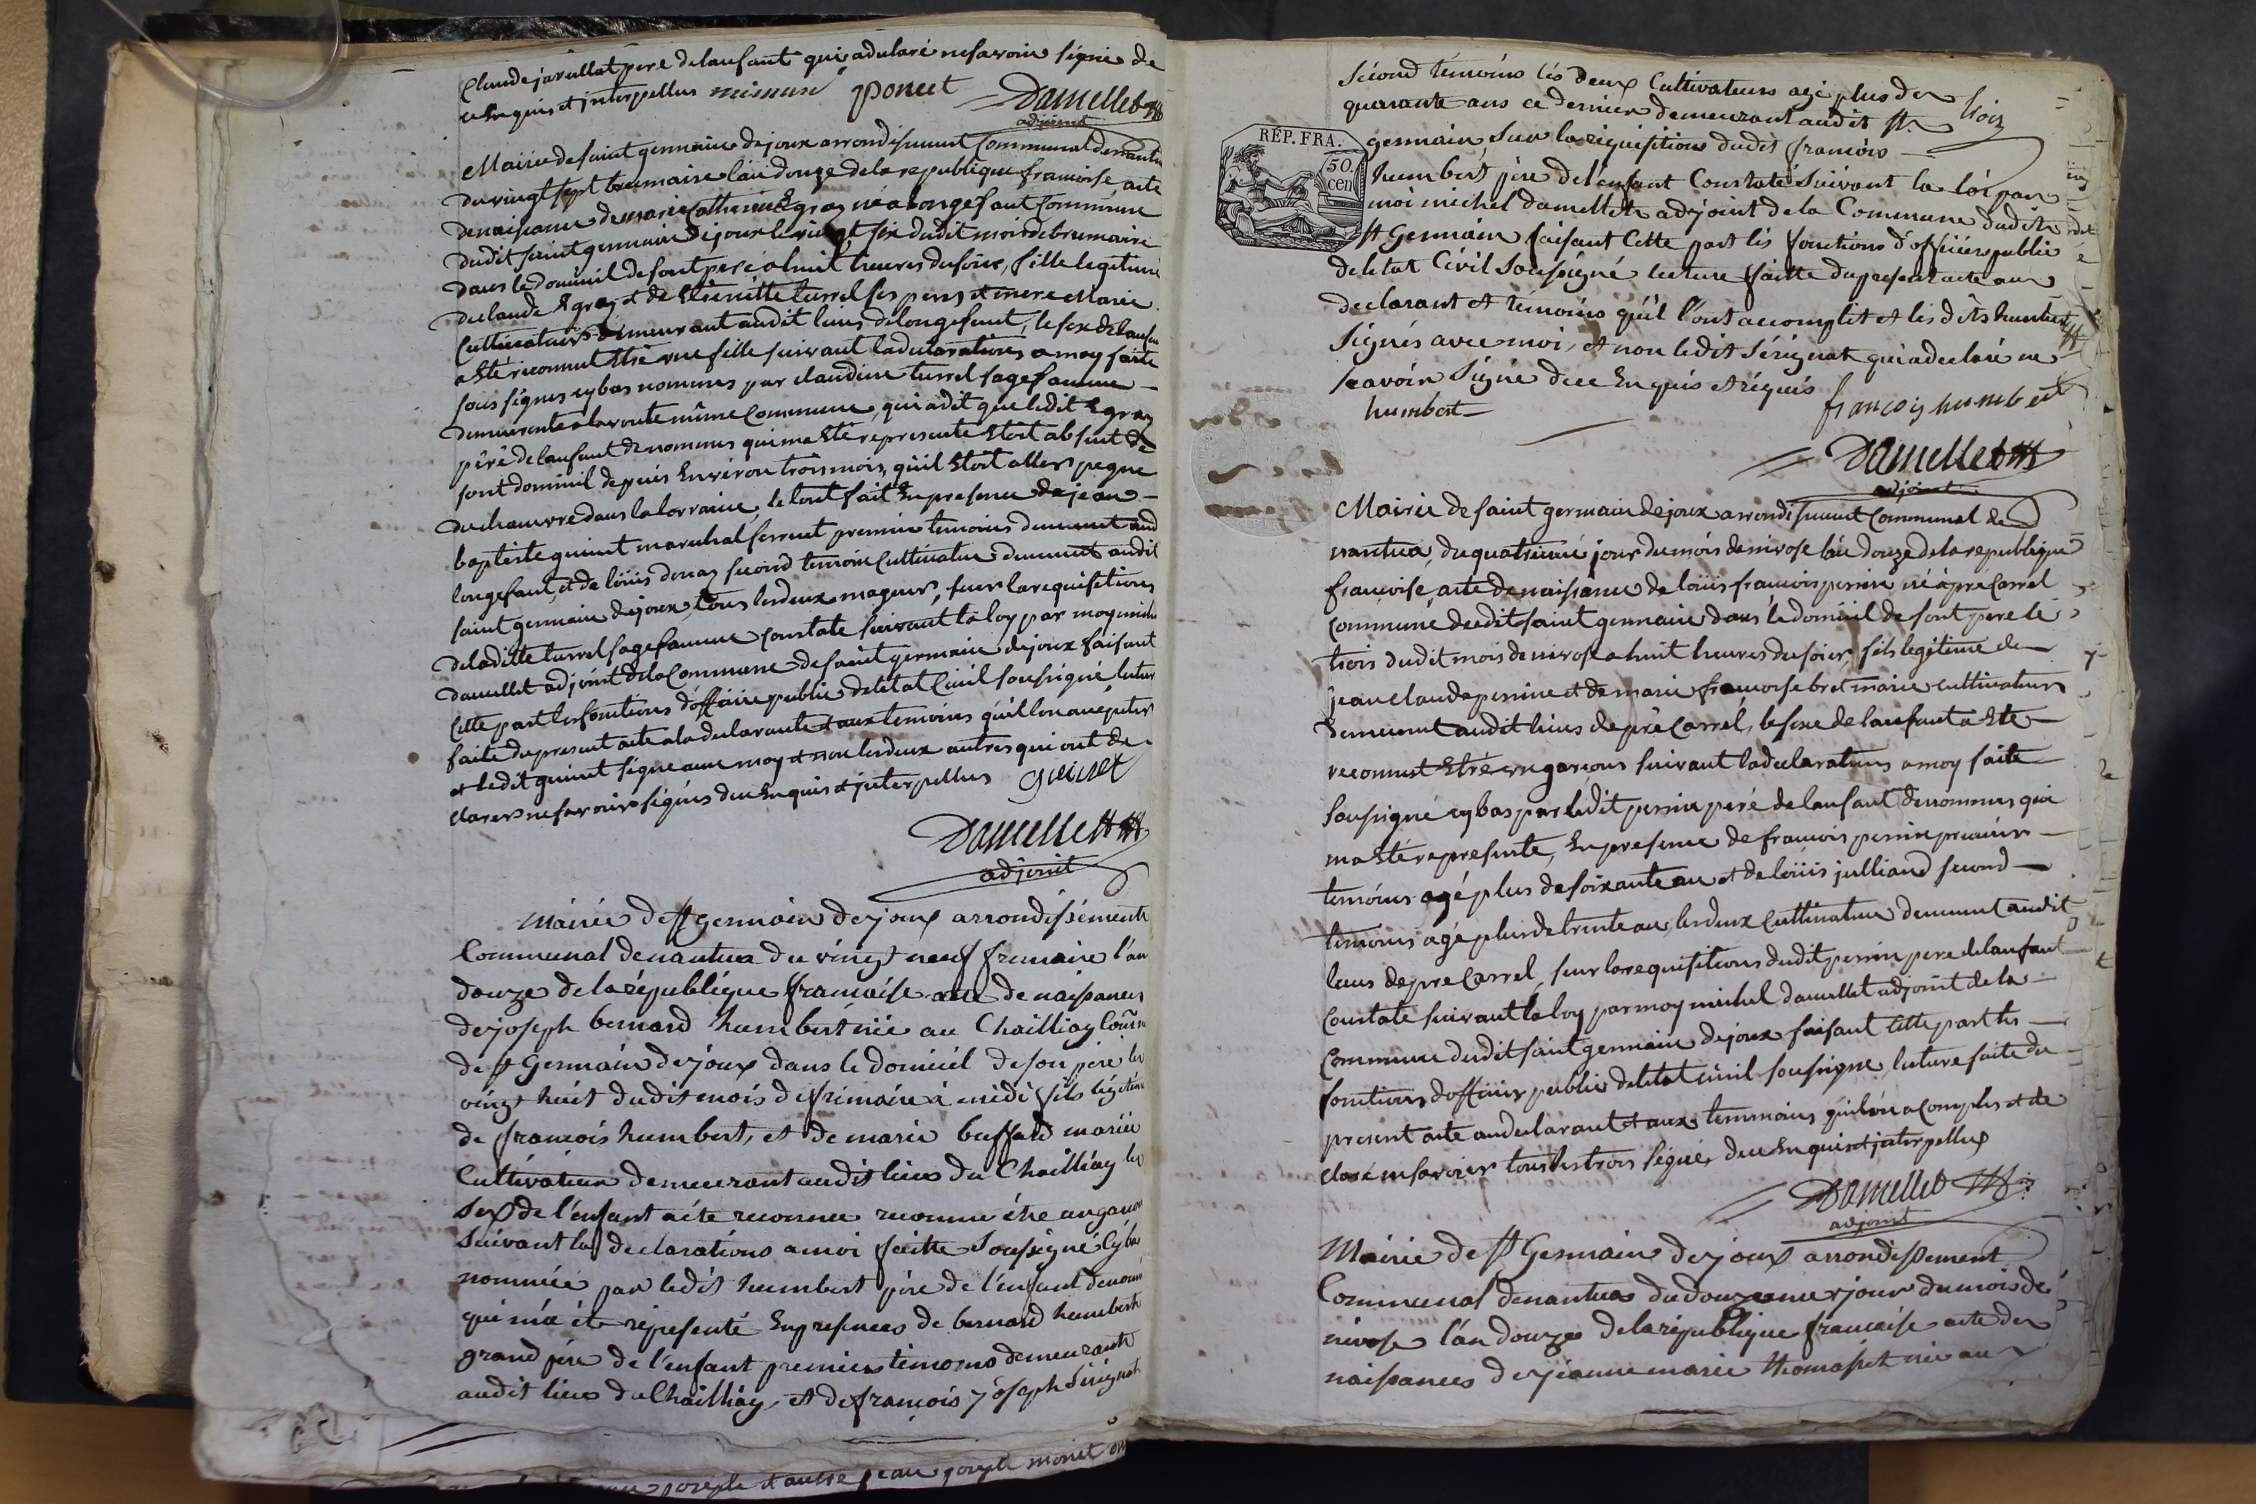 Claude javallat pere delanfant qui adularé nesavoir signé de
ce Enquis et jnterpellus poncet Damellet
adjoint
Mairie de saint germain dejoux arrondisement Communal denantua
du vingt sept brumaire lan douze dela republique francoise acte
denaisance de marie Catherine Egraz née a longefant Commune
dudit saint germain dejoux le vingt six dudit mois debrumaire
dans le domicil de sont pere a huit heures dusoir, fille legitime
declaude Egraz et de turrel ses pere et mere Marie
Cultivateurs demeurant audit lieus de longefant, le sexe delanfan
a Eté reconnut Etre une fille suivant ladeclarations a moy faite
sous signes cybas nommes par claudine turrel sagefamme —
demeurente alavoute même Commune, qui adit que ledit Egraz
pêrê delanfant denommes qui ma Eté represente Etoit absent de
sont domicil depuis Environ trois mois, qu'il Etoit aller pegne
duchanvre dans la lorraine, le tout fait En presence de jean —
baptiste guinet marechal ferrent premier temoins demeurant aud
longefant, et de loüis donaz second temoin Cultivateur demeurant audit
saint germain dejoux, tous lesdeux mageurs, sur larequisitions
deladitte turrel sagefamme constate suivant la loy par moy miche
Damellet adjoint dela Commune de saint germain dejoux faisant
Cette part les fonctions d'officier public deletat Civil soussigné, lectur
faite dupresent acte aladeclarante et aux temoins qu'il
et ledit guinet signe avec moy et non lesdeux autres qui ont de
clarer nesavoir signés de ce Enquis et jnterpellus guinet
Damellet
adjoint
Mairie de St Germain dejoux arrondissement
Communal denantua du vingt neuf frimaire l'an
douze de la république francaise acte de naissances
de joseph bernard humbert née au Chailliay Comn
de St Germain dejoux dans le domicil de son père le
vingt huit dudit mois de frimaire à midi fils légitim
de francois humbert, et de marie buffard mariée
Cultivateur demeurant audit lieu du Chailliay le
sex de l'enfant a été reconnu reconnu être un garcon
suivant la declarations a moi faitte soussigné Cyba
nommée par ledit humbert père de l'enfant denom
qui m'a été répresenté En presences de bernard humbert
grand père de l'enfant premier témoins demeurant
audit lieu du Chailliay, et de francois joseph Sérignat
joseph et autre jean joseph monet
second témoins les deux Cultivateurs agé plus de
quarante ans ce dernier demeurant audit St.
germain, sur la réquisitions dudit francois —
RÉP. FRA.
50.
cen
humbert, père de l'enfant Constaté suivant la loi par
moi michel damellet adjoint de la Commune dudit
St Germain faisant Cette part les fonctions d'officiers public
de l'état Civil soussigné lecture faitte du present acte au
declarant et témoins qu'il l'ont accomplit et les dits humbert
signés avec moi, et non ledit Sérignat qui a declaré ne
scavoir signé de ce Enquis et réquis francois humbert
humbert
Damellet
adjoint
Mairie de saint germain dejoux arrondisement Communal de
nantua, du quatrieme jour du mois de nivose lan douze dela republique
francoise, acte denaisance de loüis francois perrin né a pré Carrel
commune dudit saint germain dans le domicil de sont pere le
trois dudit mois de nivose a huit heures du soir, fils legitime de
jean claude perrin et de marie francoise bret mariée cultivateurs
demeurant audit lieus de pré Carrel, le sexe de lanfant a Eté —
reconnut Etré un garcons suivant ladeclarations a moy faite
soussigné cybas par ledit perrin peré de lanfant denommes qui
ma Eté represente, En presence de francois perrin premier —
temoins agé plus de soixante an et de loüis julliand second —
temoins agé plus de trente an, les deux Cultivateur demeurant audit
lieus de pre Carrel, sur la requisitions dudit perrin pere de lanfant
Constate suivant la loy par moy michel damellet adjoint de la —
Commune dudit saint germain dejoux faisant Cette part les —
fonctions d'officier public de l'etat civil soussigne, lecture faite du
present acte au declarant et aux temmoins qu'il on acomplis et de
claré ne savoir tous les trois signé, de ce Enquis et jnterpellus
Damellet
adjoint
Mairie de St Germain dejoux arrondissement
Communal denantua du douzieme jour du mois de
nivose l'an douze de la république francaise acte de
naissances de jéanne marie thomasset née au